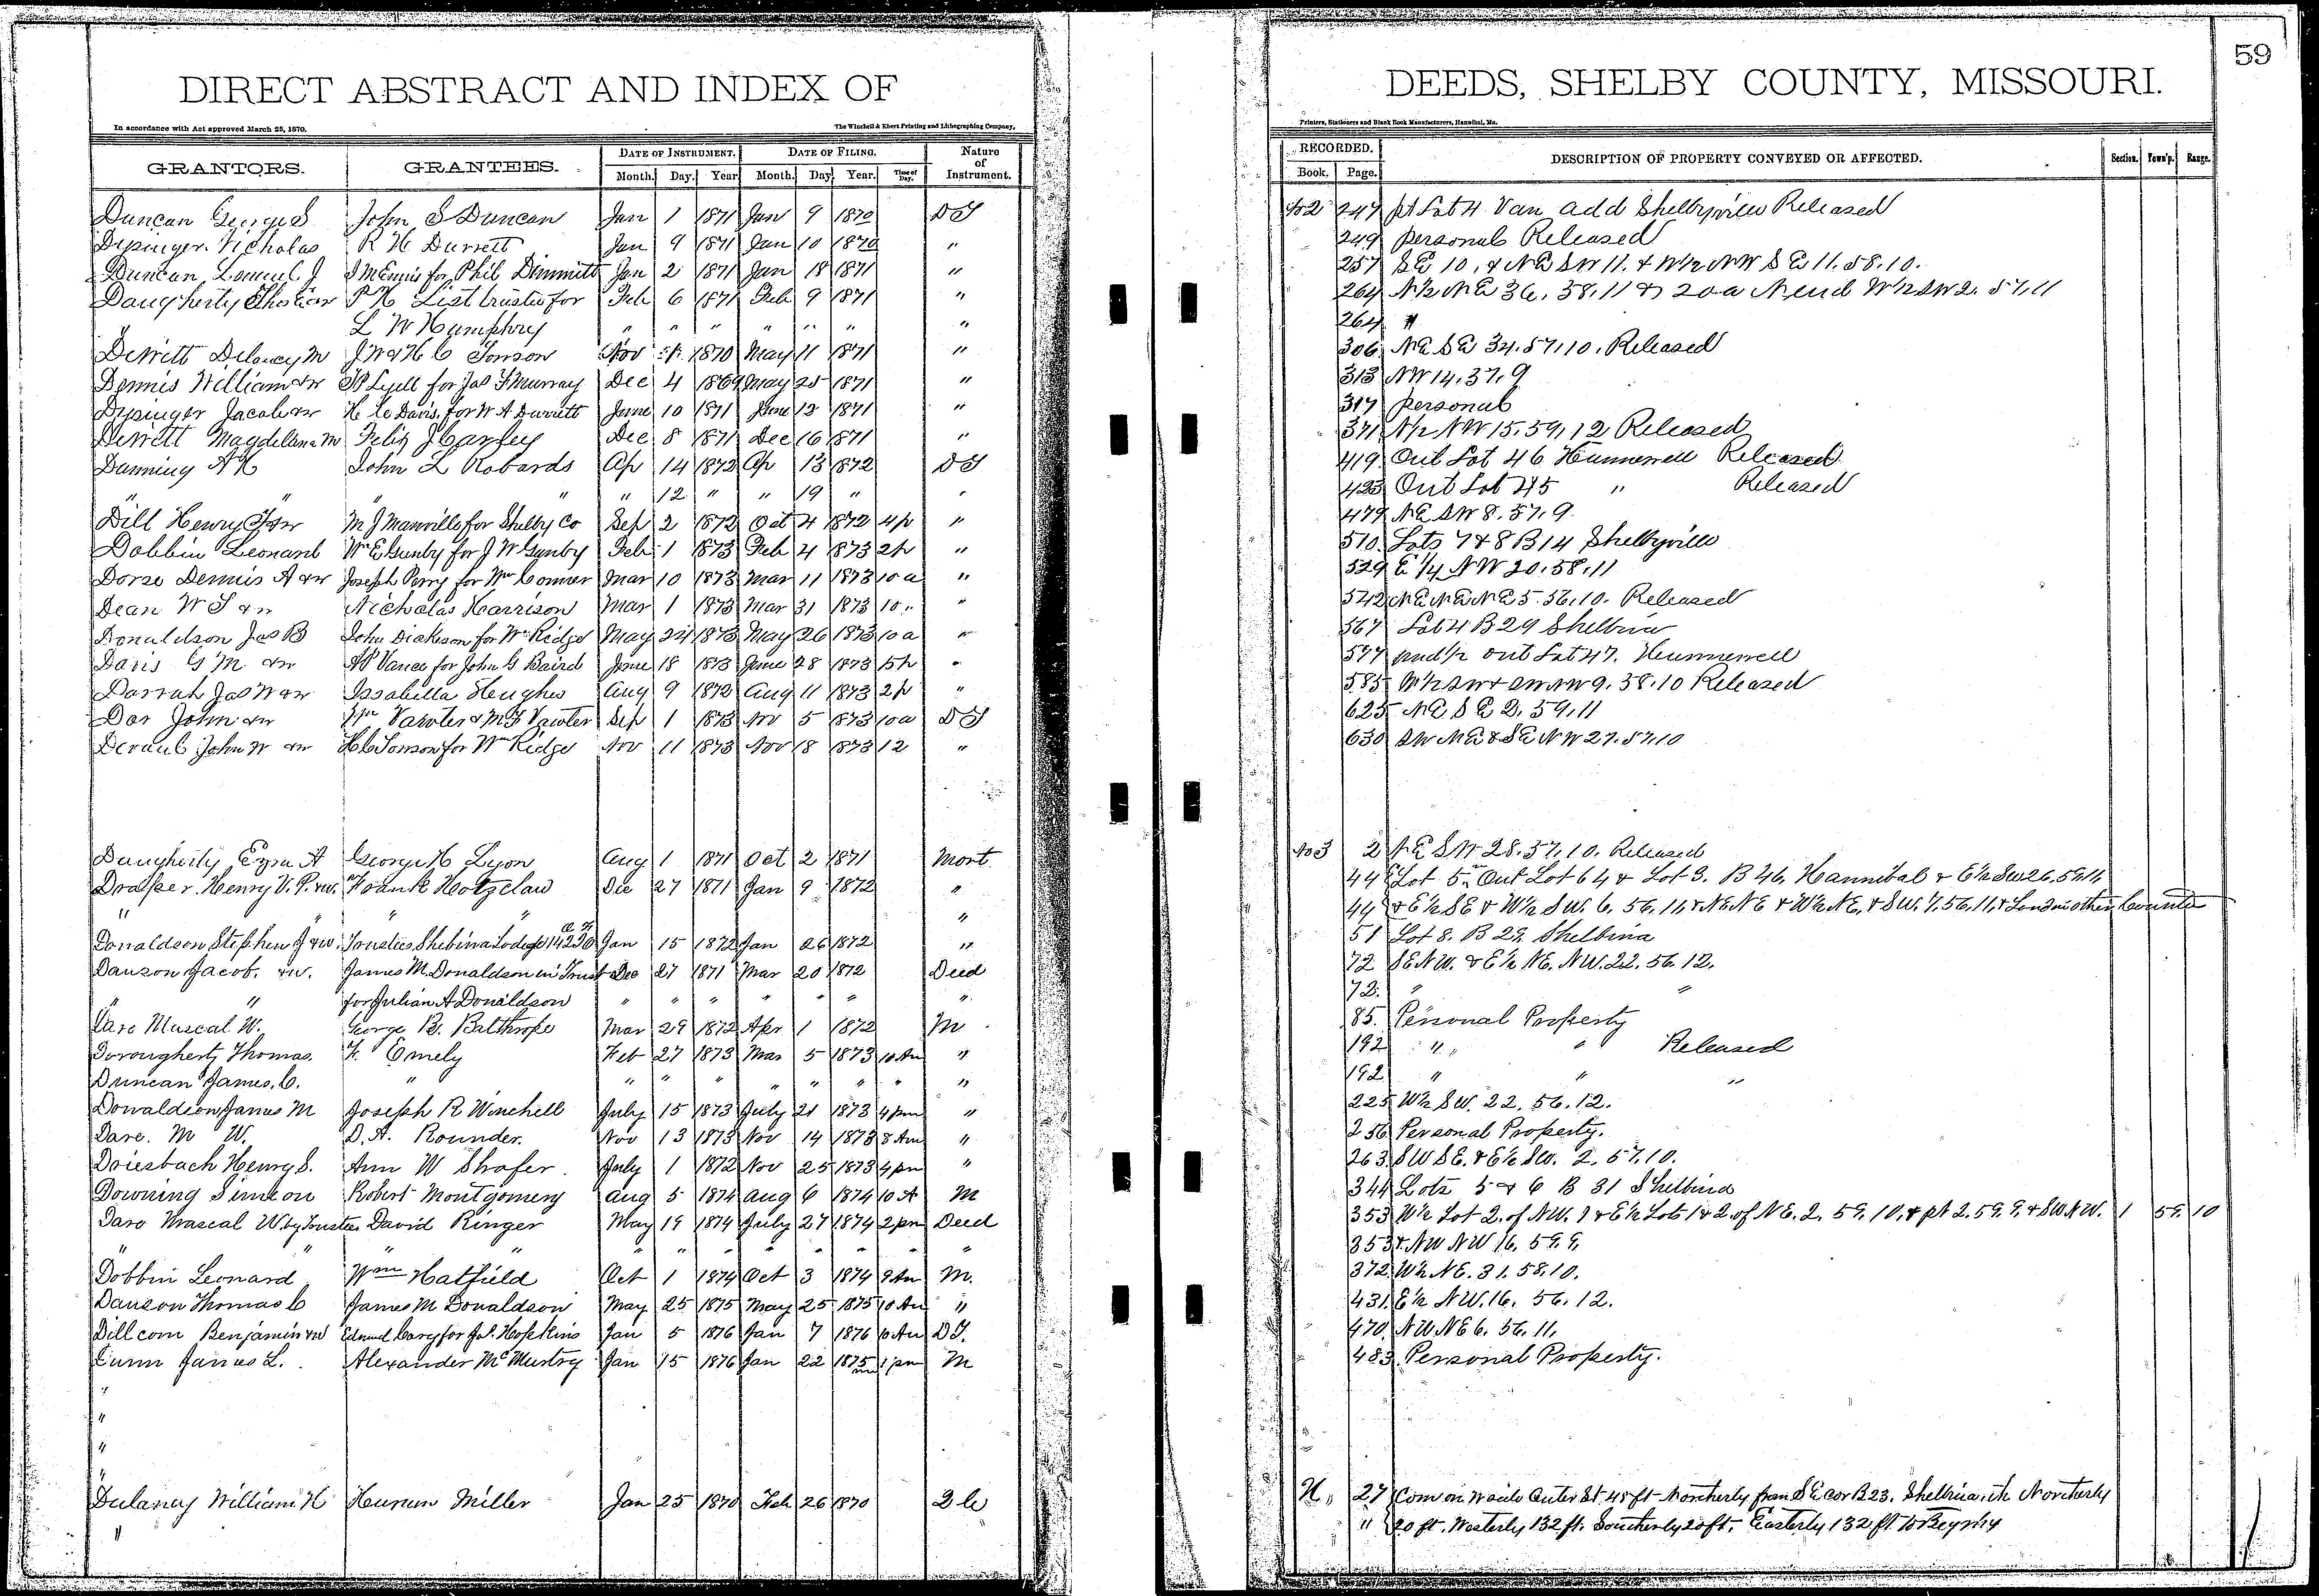 DIRECT ABSTRACT AND INDEX OF DEEDS, SHELBY COUNTY, MISSOURI.
59
In accordance with Act approved March 25, 1870. The Winchell & Ebert Printing and Lithographing Company, Printers, Stationers and Blank Book Manufacturers, Hannibal, Mo.
GRANTORS. GRANTEES. DATE OF INSTRUMENT. DATE OF FILING. Nature of Instrument. RECORDED. DESCRIPTION OF PROPERTY CONVEYED OR AFFECTED. Section. Town'p. Range.
Month. Day. Year. Month. Day. Year. Time of Day. Book. Page.
Duncan George S John S Duncan Jan 1 1871 Jan 9 1870 DT No 2 247 pt Lot 4 Van add Shelbyville Released
Nicholas R H Durrett Jan 9 1871 Jan 10 1870 " 249 Personal Released
Duncan Lemuel J for Phil Dimmitt Jan 2 1871 Jan 18 1871 " 257 SE 10. & NE SW 11. & W½ NW SE 11. 58. 10.
Daugherty P H List trustee for Feb 6 1871 Feb 9 1871 " 264 N½ NE 36. 58. 11 & 20a N end W½ SW 2. 57. 11
L W Humphrey " " " " " " " 264 "
DeWitt Delancy M J W & H C Tonson Nov 1870 May 11 1871 " 306 NE SE 34. 57. 10. Released
Dennis William & W T P Lyell for Jas F Murray Dec 4 1869 May 25 1871 " 313 NW 14. 37. 9
Jacob & W H C Davis. for W A Durrett June 10 1871 June 12 1871 " 317 Personal
DeWitt Magdelena M Felix J Carfey Dec 8 1871 Dec 16 1871 " 371 N½ NW 15. 59. 12 Released
Danning A K John L Robards Ap 14 1872 Ap 13 1872 DT 419 Out Lot 46 Hunnewell Released
" " " 12 " " 19 " " 423 Out Lot 45 " Released
Dill Henry T & W M J Manville for Shelby Co Sep 2 1872 Oct 4 1872 4p " 479 NE SW 8. 57. 9.
Dobbin Leonard Wm E Gunby for J W Gunby Feb 1 1873 Feb 4 1873 2p " 510 Lots 7 & 8 B 14 Shelbyville
Dorse Dennis A & W Joseph Perry for Wm Conner Mar 10 1873 Mar 11 1873 10 a " 529 E ¼ NW 20. 58. 11
Dean W S & W Nicholas Harrison Mar 1 1873 Mar 31 1873 10 " " 542 NE NE NE 5. 56. 10. Released
Donaldson Jas B John Dickeson for Wm Ridge May 24 1873 May 26 1873 10 a " 567 Lot 4 B 29 Shelbina
Davis G M & W A P Vance for John G Baird June 18 1873 June 28 1873 5p " 577 und ½ out Lot 47. Hunnewell
Darrah Jas W & W Issabella Hughes Aug 9 1872 Aug 11 1873 2p " 585 W½ SW & SW NW 9. 58. 10 Released
Dor John & W Wm Vawter & M F Vawter Sep 1 1873 Nov 5 1873 10 a DT 625 NE SE 2. 59. 11
Deraul John W & W H C Tonson for Wm Ridge Nov 11 1873 Nov 18 1873 12 " 630 SW NE & SE NW 27. 57. 10
Daugherty Ezra A George H Lyon Aug 1 1871 Oct 2 1871 Mort. No 3 2 NE SW 28. 57. 10. Released
Draper. Henry V. P. & W. Frank Hotzclaw Dec 27 1871 Jan 9 1872 " 44 Lot 5 in Out Lot 64 & Lot 3. B 46. Hannibal & E½ SW 26. 59. 11
" " " " 44 & E½ SE & W½ SW. 6. 56. 11. & NE NE & W½ NE. & SW. 7. 56. 11. & Land in other Counties
Donaldson Stephen J & W. Trustees Shelbina Lodge Jan 15 1872 Jan 26 1872 " 51 Lot 8. B 29. Shelbina
Dauson Jacob. & W. James M. Donaldson in Trust Dec 27 1871 Mar 20 1872 Deed 72 SE NW. & E½ NE. NW. 22. 56. 12.
" " for Julian A Donaldson " " " " " " " 72. " "
Dare Muscal W. George B. Balthrope Mar 29 1872 Apr 1 1872 M 85. Personal Property
Dorougherty Thomas. F. Emely Feb 27 1873 Mar 5 1873 10 Am " 192 " " Released
Duncan James. C. " " " " " " " " " 192 " " "
Donaldson James M Joseph R Winchell July 15 1873 July 21 1873 4 pm " 225 W½ SW. 22. 56. 12.
Dare. M W. D. A. Rounder. Nov 13 1873 Nov 14 1873 8 Am " 256 Personal Property.
Driesbach Henry S. Ann W Shafer. July 1 1872 Nov 25 1873 4 pm " 263 SW SE. & E½ SW. 2. 57. 10.
Downing Simeon Robert Montgomery Aug 5 1874 Aug 6 1874 10 A M 344 Lots 5 & 6 B 31 Shelbina
Dare Mascal W. by Trustee David Ringer May 19 1874 July 27 1874 2 pm Deed 353 W½ Lot 2. of NW. 1 & E½ Lots 1 & 2. of NE. 2. 59. 10. & pt 2. 59. 9. & SW NW. 1 59. 10
" " " " " " " " " " " 353 & NW NW 16. 59. 9.
Dobbin Leonard Wm Hatfield Oct 1 1874 Oct 3 1874 9 Am M. 372 W½ NE. 31. 58. 10.
Dauson Thomas C James M Donaldson May 25 1875 May 25 1875 10 Am " 431. E½ NW. 16. 56. 12.
Dillcom Benjamin & W Edmund Cary for Jas. Hopkins Jan 5 1876 Jan 7 1876 10 Am DT. 470. NW NE 6. 56. 11.
Dunn James L. Alexander McMurtry Jan 15 1876 Jan 22 1875 1 pm M 483 Personal Property.
"
"
"
"
Dulaney William H Hurum Miller Jan 25 1870 Feb 26 1870 H " 27 Com on W side Center St. 48 ft Northerly from SE cor B 23. Shelbina. th Northerly
" " 20 ft. Westerly 132 ft. Southerly 20 ft. Easterly 132 ft. to Beg'ng